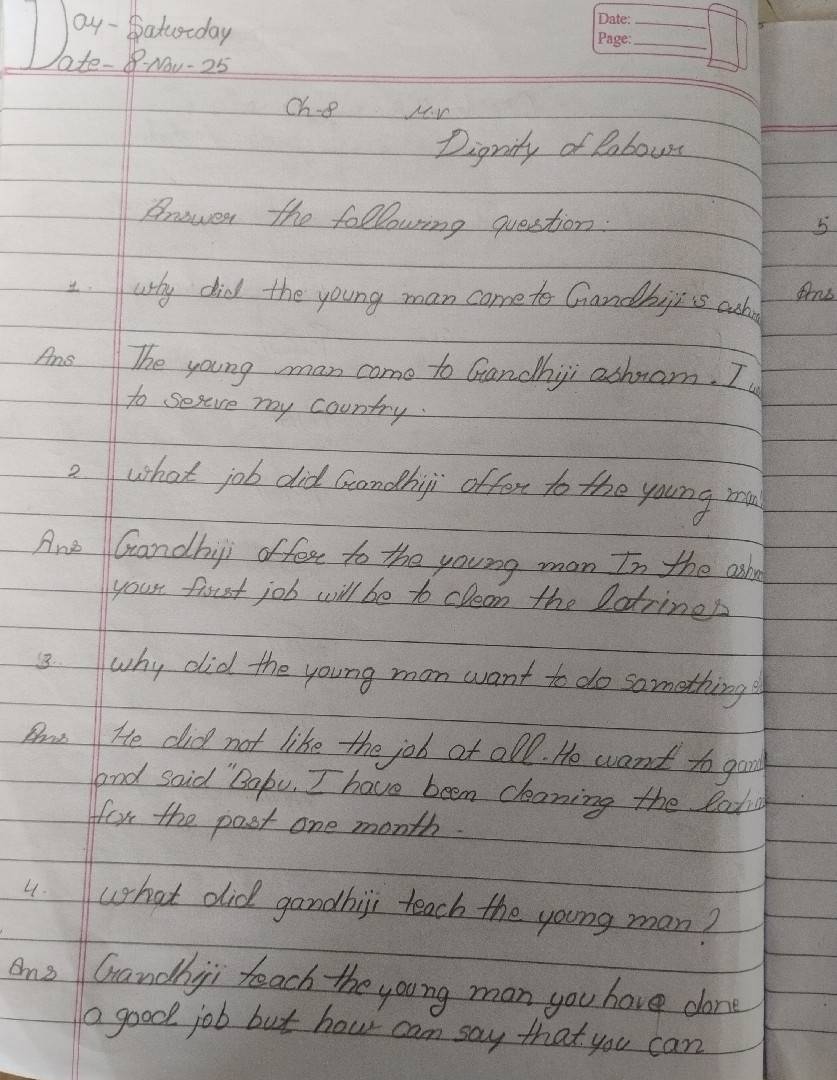 Day - Saturday
Date - 8-Nov-25
Date:
Page:
Ch-8 M.V
Dignity of Labour
Answer the following question:
5
1. why did the young man come to Gandhiji's
Ans
Ans The young man come to Gandhiji ashram. I
to serve my country.
2. what job did Gandhiji offer to the young
Ans Gandhiji offer to the young man In the
your first job will be to clean the latrines
3. why did the young man want to do something
Ans He did not like the job at all. He want to
and said "Bapu. I have been cleaning the
for the past one month.
4. what did gandhiji teach the young man?
Ans Gandhiji teach the young man you have done
a good job but how can say that you can